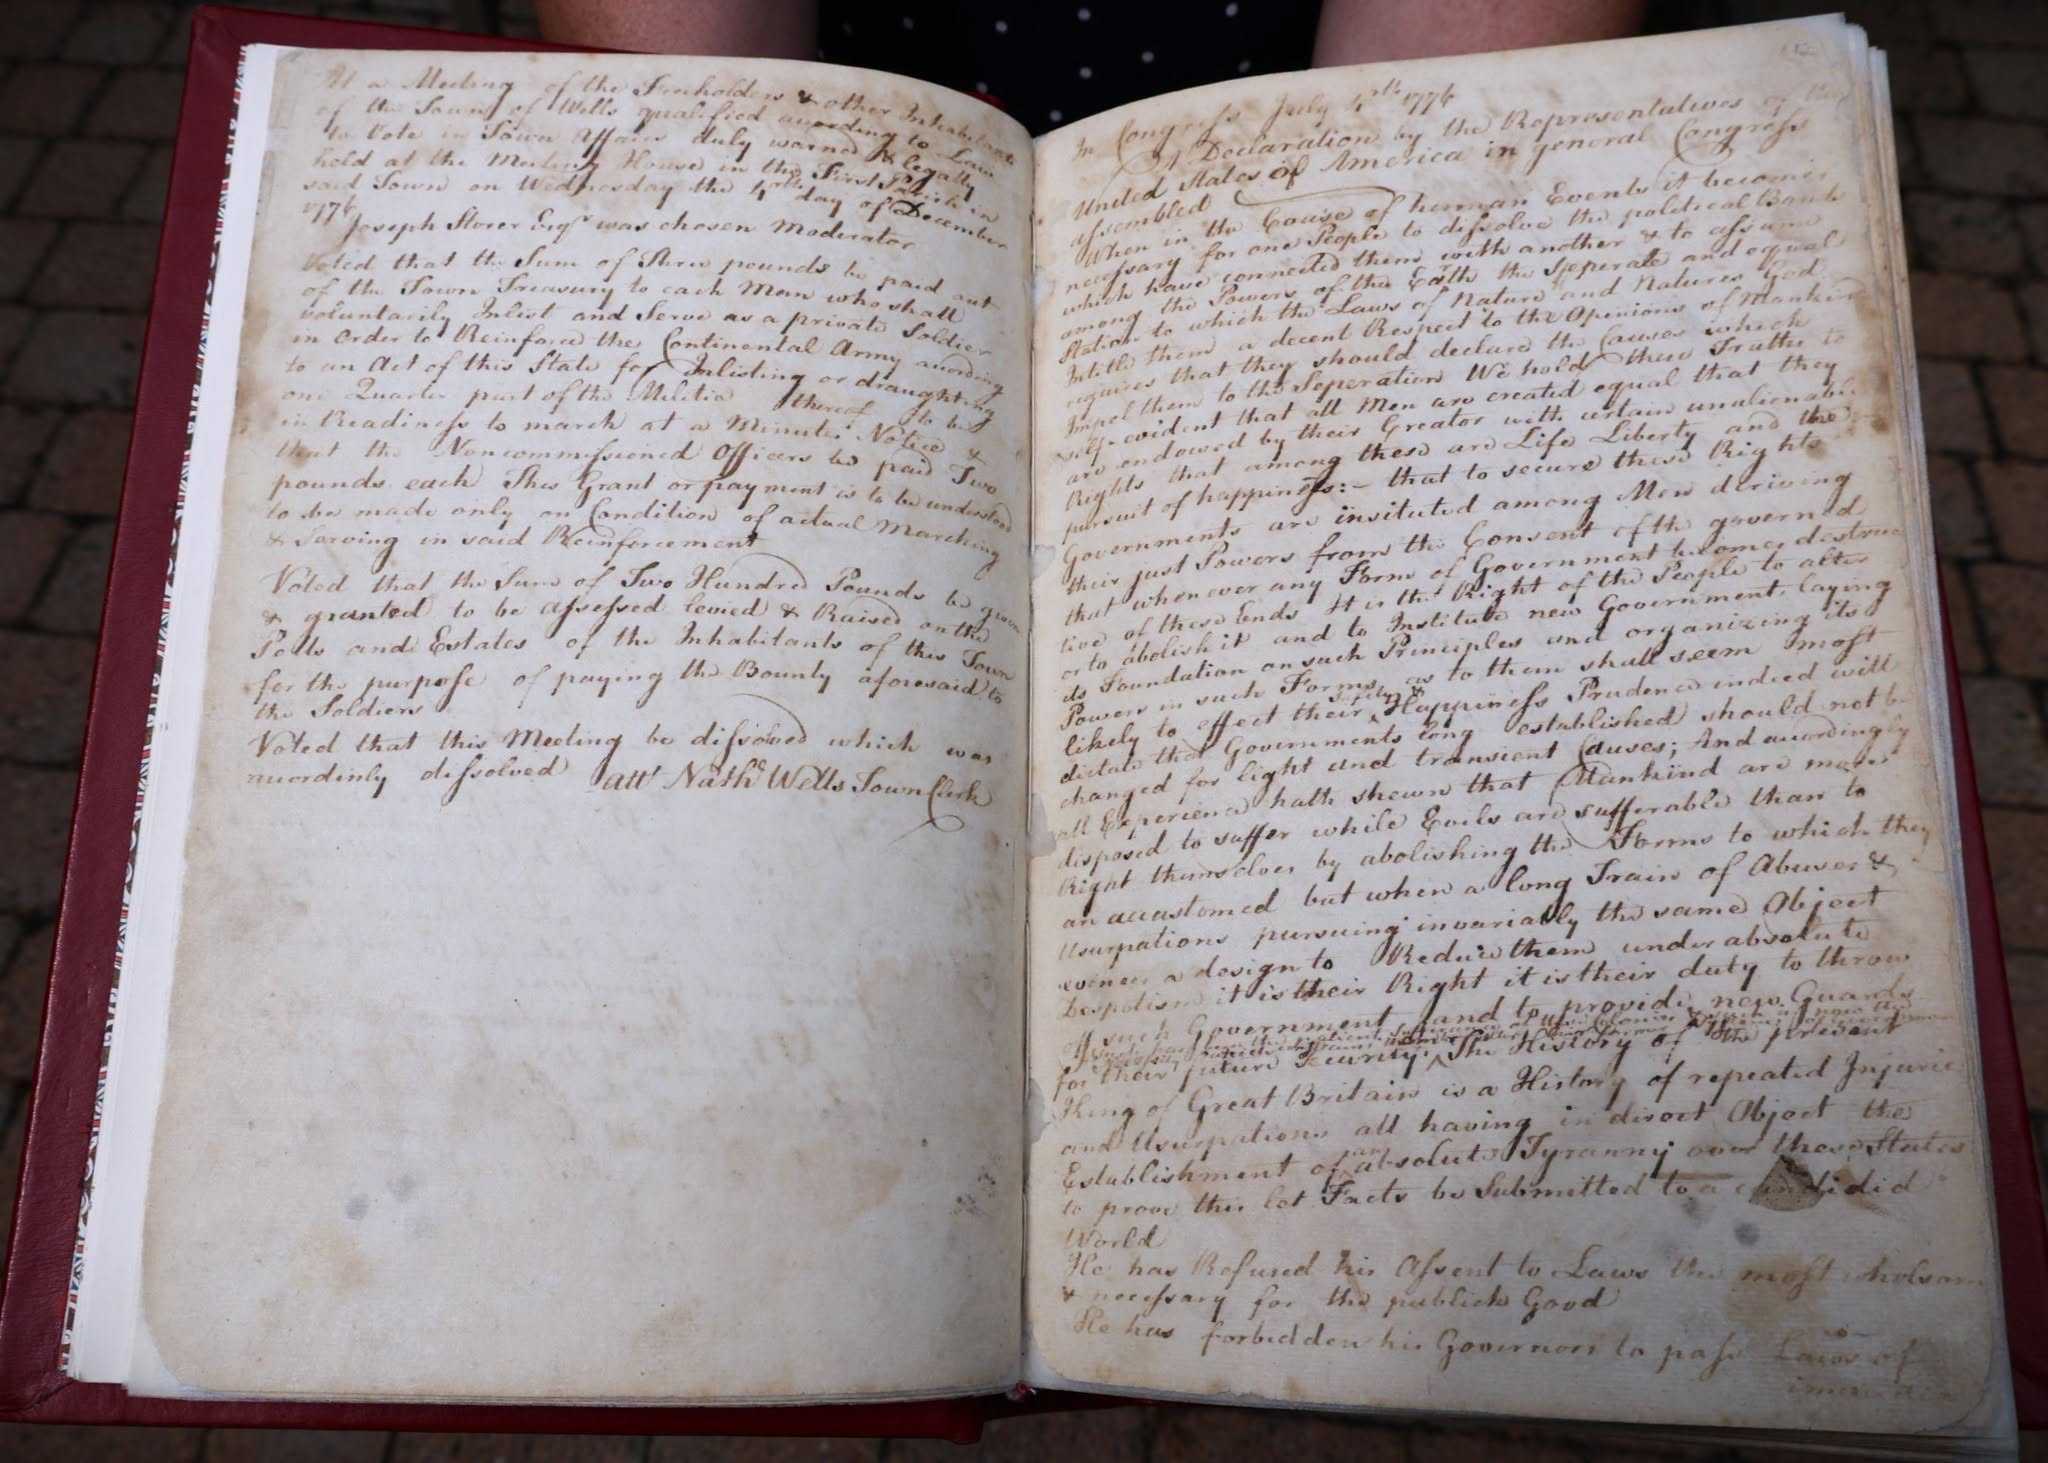 At a Meeting of the Freeholders & other Inhabitants
of the Town of Wells qualified according to Law
to Vote in Town Affairs duly warned & legally
held at the Meeting House in the First Parish in
said Town on Wednesday the 4th day of December
1776
Joseph Storer Esqr was chosen Moderator
Voted that the Sum of Three pounds be paid out
of the Town Treasury to each Man who shall
voluntarily Inlist and Serve as a private Soldier
in Order to Reinforce the Continental Army according
to an Act of this State for Inlisting or draughting
one Quarter part of the Militia thereof to be
in Readiness to march at a Minutes Notice &
that the Noncommissioned Officers be paid Two
pounds each This Grant or payment is to be understood
to be made only on Condition of actual Marching
& Serving in said Reinforcement
Voted that the Sum of Two Hundred Pounds be given
& granted to be assessed levied & Raised on the
Polls and Estates of the Inhabitants of this Town
for the purpose of paying the Bounty aforesaid to
the Soldiers
Voted that this Meeting be dissolved which was
acordinly dissolved att Nathl Wells Town Clerk
In Congress July 4th 1776
A Declaration by the Representatives of the
United States of America in general Congress
assembled
When in the Course of human Events it becomes
necessary for one People to dissolve the political Bands
which have connected them with another & to assume
among the Powers of the Earth the Seperate and equal
Station to which the Laws of Nature and Natures God
Intitle them a decent Respect to the Opinions of Mankind
requires that they should declare the Causes which
Impel them to the Seperation We hold these Truths to
self evident that all Men are created equal that they
are endowed by their Creator with certain unalienable
Rights that among these are Life Liberty and the
pursuit of happiness:- that to secure these Rights
Governments are insituted among Men deriving
their just Powers from the Consent of the governed
that whenever any Form of Government becomes destruc
tive of these Ends It is the Right of the People to alter
or to abolish it and to Institute new Government laying
its Foundation on such Principles and organizing its
Powers in such Forms as to them shall seem most
likely to effect their safety & Happiness Prudence indeed will
dictate that Governments long established should not be
changed for light and transient Causes; And accordingly
all Experience hath shewn that Mankind are more
disposed to suffer while Evils are sufferable than to
Right themselves by abolishing the Forms to which they
are accustomed but when a long Train of Abuses &
Usurpations pursuing invariably the same Object
evinces a design to Reduce them under absolute
Despotism it is their Right it is their duty to throw
off such Government and to provide new Guards
for their future Security. The History of the present
King of Great Britain is a History of repeated Injuries
and Usurpations all having in direct Object the
Establishment of an absolute Tyranny over these States
to prove this let Facts be Submitted to a candidid
World
He has Refused his Assent to Laws the most wholsom
& necessary for the publick Good
He has forbidden his Governors to pass Laws of